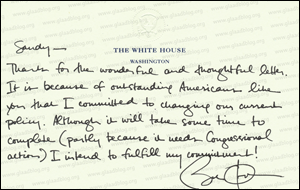 THE WHITE HOUSE
WASHINGTON
Sandy —
Thanks for the wonderful and thoughtful letter.
It is because of outstanding Americans like
you that I committed to changing our current
policy. Although it will take some time to
complete (partly because it needs Congressional
action) I intend to fulfill my commitment!